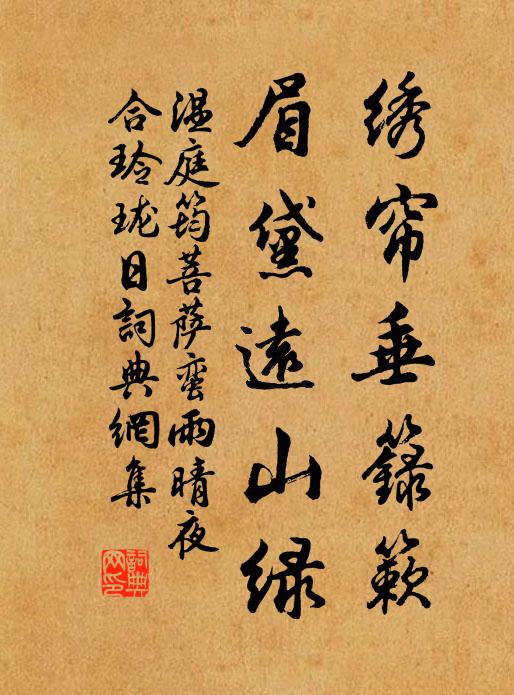 绣帘垂籙簌
眉黛遠山绿
温庭筠菩萨蛮雨晴夜
合玲珑日詞典網集
詞典网印